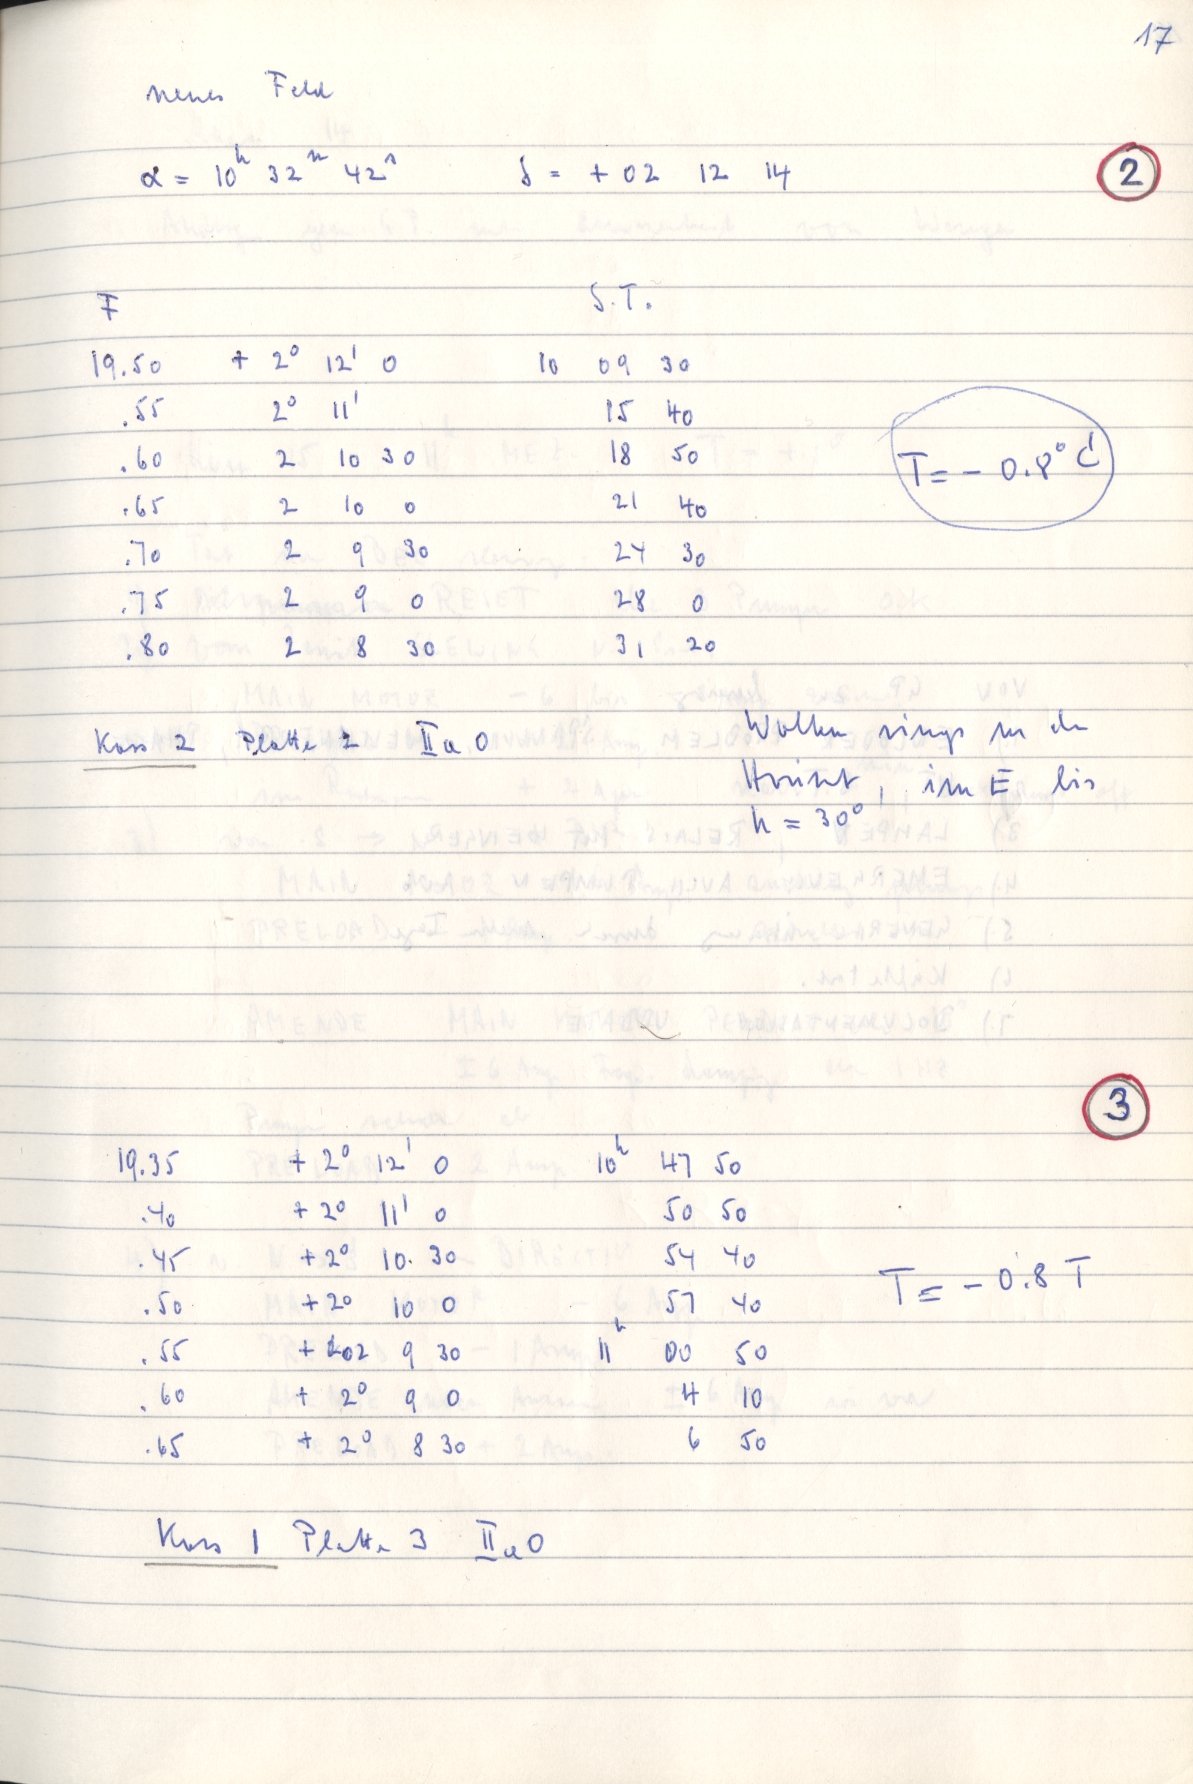 17
neues Feld
α = 10h 32m 42s δ = + 02 12 14
2
F S.T.
19.50 + 2° 12' 0 10 09 30
.55 2° 11' 15 40
.60 2 10 30 18 50
.65 2 10 0 21 40
.70 2 9 30 24 30
.75 2 9 0 28 0
.80 2 8 30 31 20
T = - 0.8° C
Kass 2 Platte 2 IIa0
Wolken rings um den
Horizont, im E bis
h = 30°
3
19.35 + 2° 12' 0 10h 47 50
.40 + 2° 11' 0 50 50
.45 + 2° 10. 30 54 40
.50 + 2° 10 0 57 40
.55 + 02 9 30 11h 00 50
.60 + 2° 9 0 4 10
.65 + 2° 8 30 6 50
T = - 0.8 T
Kass 1 Platte 3 IIa0